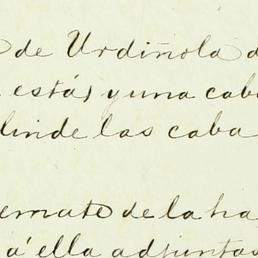 de Urdiñola d
está) y una cab
linde las caba
emate de la ha
a' ella adjuntas